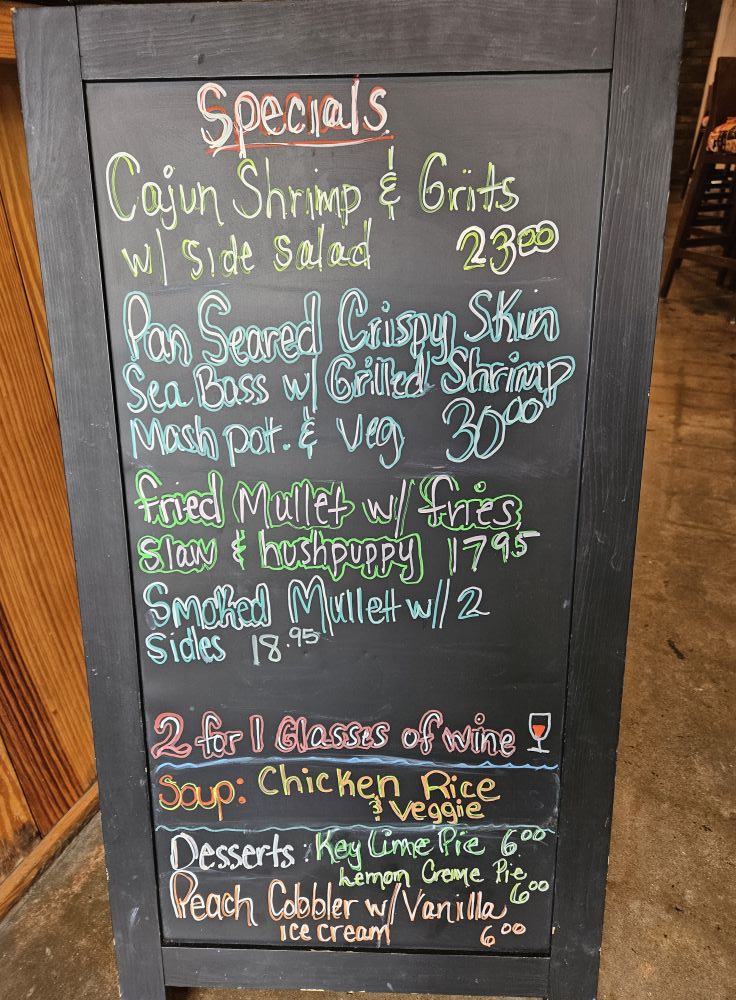 Specials
Cajun Shrimp & Grits
w/ side salad 23.00
Pan Seared Crispy Skin
Sea Bass w/ Grilled Shrimp
Mash pot. & Veg 30.00
fried Mullet w/ fries,
slaw & hushpuppy 17.95
Smoked Mullett w/ 2
sides 18.95
2 for 1 Glasses of wine
Soup: Chicken Rice
& Veggie
Desserts: Key Lime Pie 6.00
Lemon Creme Pie
6.00
Peach Cobbler w/ Vanilla
ice cream 6.00